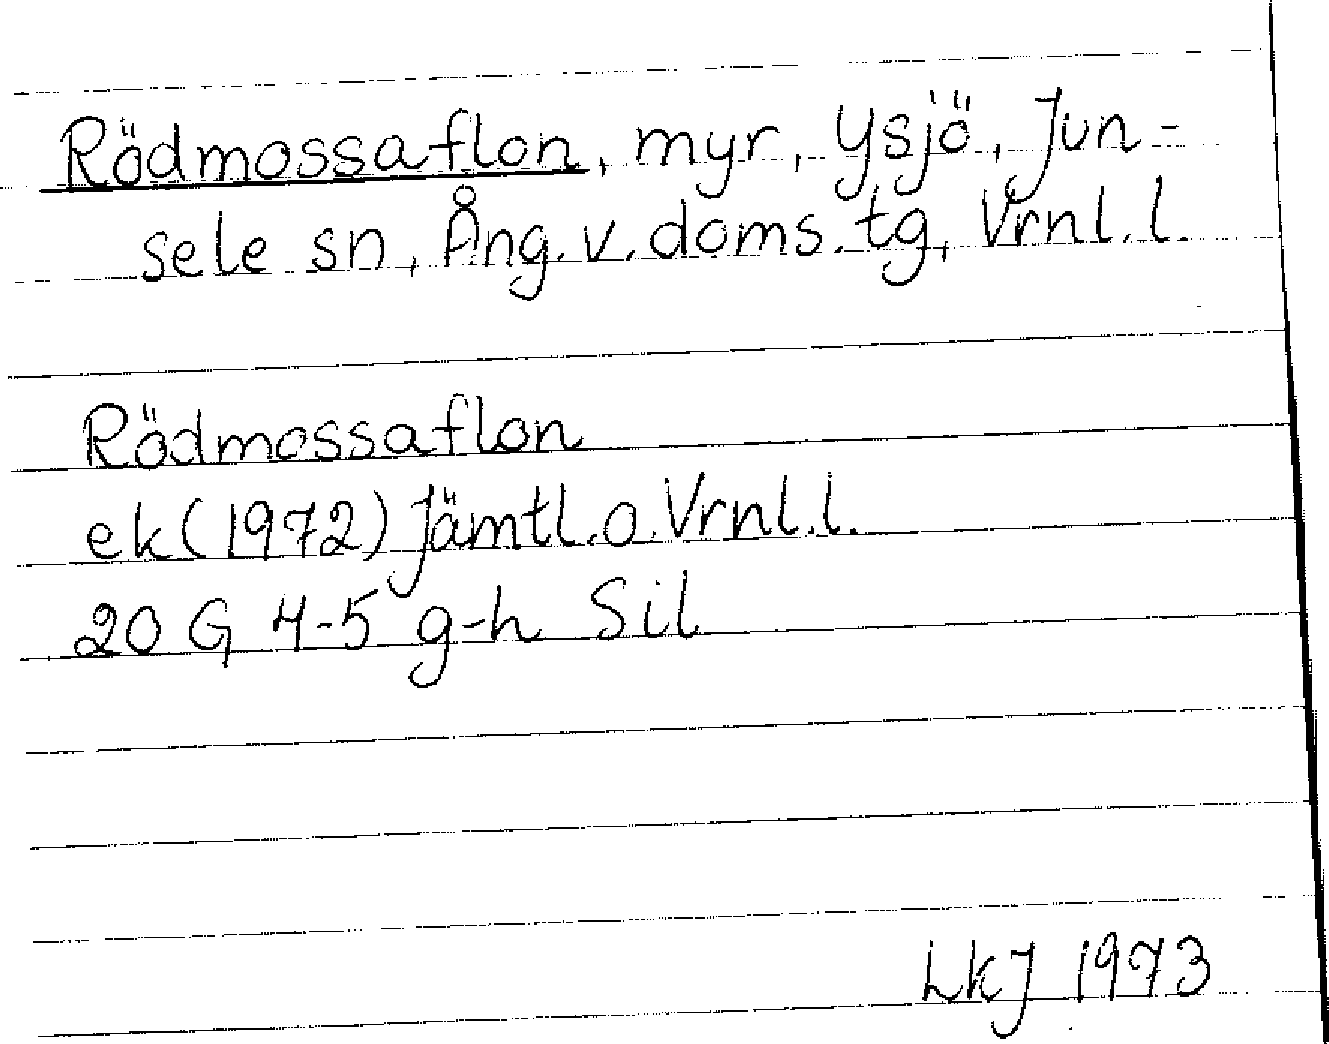 Rödmossaflon, myr, Ysjö, Jun-
sele sn, Ång. v. doms. tg, Vrnl. l.
Rödmossaflon
ek (1972) Jämtl. o. Vrnl. l.
20 G 4-5 g-h Sil
LkJ 1973